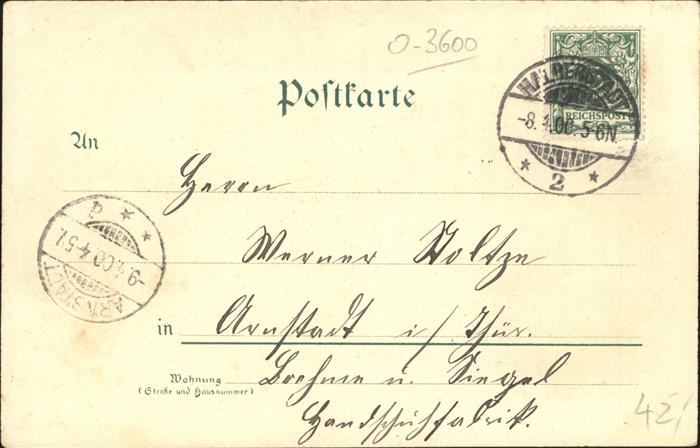 0-3600
Postkarte
REICHSPOST
HALBERSTADT
-8.4.00.5-6N.
* 2 *
An
Herrn
Werner Stoltze
ARNSTADT
-9.4.00.4-5V.
in Arnstadt i/Thür.
Wohnung
(Straße und Hausnummer)
Boehme u. Siegel
Handschuhfabrik.
42/